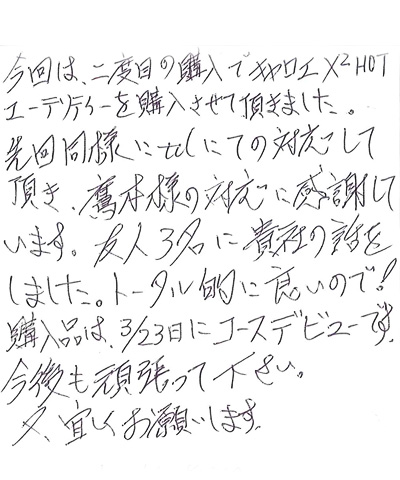 今回は、二度目の購入でキャロエX²HOT
ユーテリティーを購入させて頂きました。
先回同様にtelにての対応して
頂き、鷹本様の対応に感謝して
います。友人3名に貴社の話を
しました。トータル的に良いので!
購入品は、3/23日にコースデビューです。
今後も頑張って下さい。
又、宜しくお願いします。